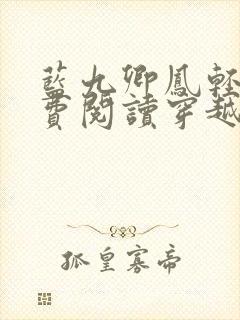 藍九卿鳳輕
費閱讀穿越
孤皇寡帝